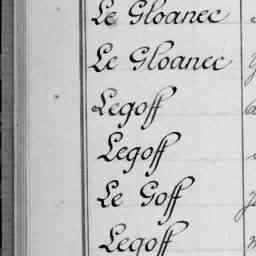 Le Gloanec
Le Gloanec
Legoff
Legoff
Le Goff
Legoff